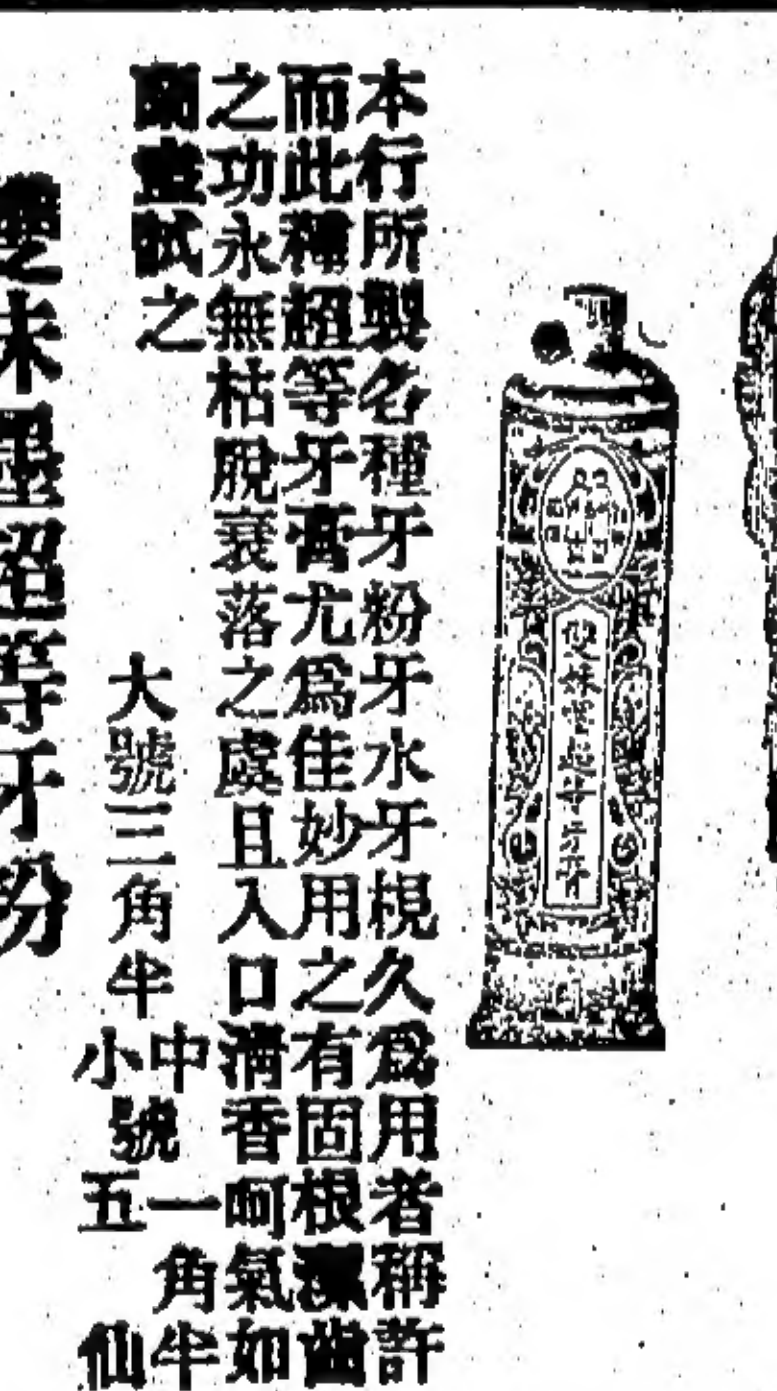 本行所製各種牙粉牙水牙梘久爲用者稱許
而此種超等牙膏尤爲佳妙用之有固根潔齒
之功永無枯脫衰落之處且入口淸香呵氣如
蘭盍試之
大號三角半
中號一角半
小號五仙
雙妹嚜超等牙粉
雙妹嚜超等牙膏